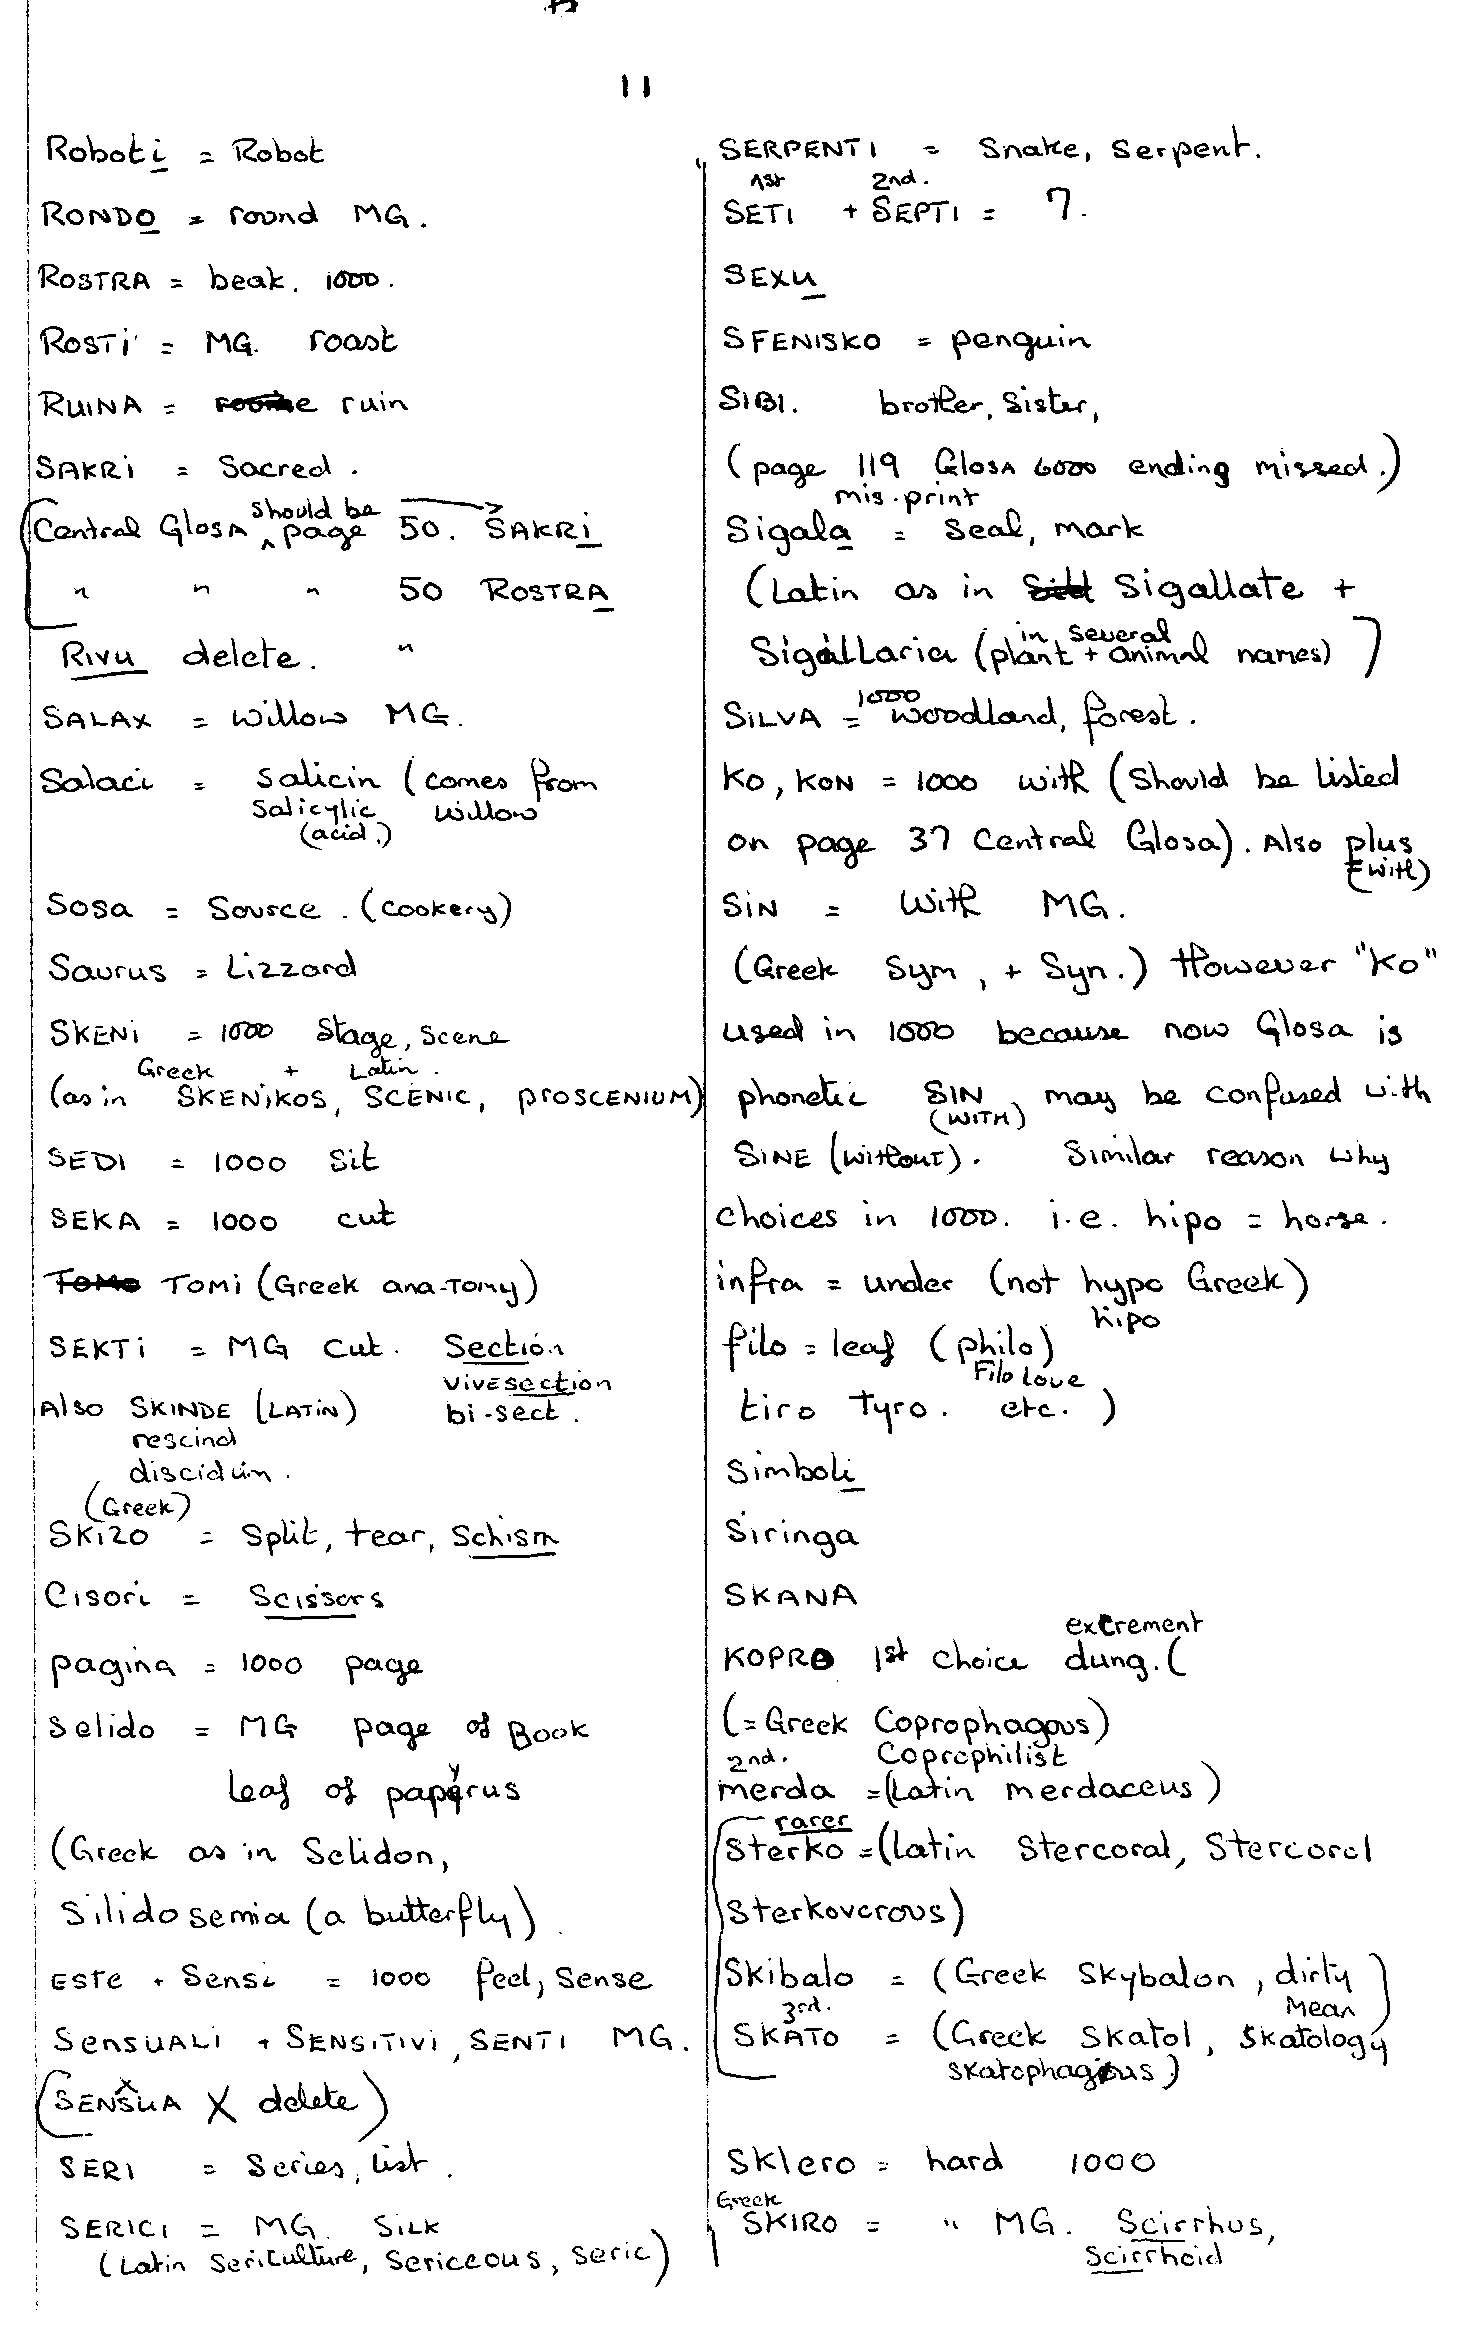 11
Roboti = Robot
RONDO = round MG.
ROSTRA = beak. 1000.
ROSTi = MG. roast
RUINA = ruin
SAKRi = Sacred.
Central Glosa should be page 50. SAKRi
" " " 50 ROSTRA
Rivu delete. "
SALAX = Willow MG.
Salaci = Salicin (comes from
Salicylic willow
(acid.)
Sosa = Source. (cookery)
Saurus = Lizzard
SKENi = 1000 Stage, Scene
Greek + Latin.
(as in SKENiKOS, SCENIC, PROSCENIUM)
SEDI = 1000 Sit
SEKA = 1000 cut
Tomo TOMi (Greek ana-TOMY)
SEKTi = MG cut. Section
vivesection
Also SKINDE (LATIN) bi-sect.
rescind
discidium.
(Greek)
SKIZO = Split, tear, Schism
Cisori = Scissors
pagina = 1000 page
Selido = MG page of Book
leaf of papyrus
(Greek as in Selidon,
Silidosemia (a butterfly)
Este + Sensi = 1000 feel, Sense
SenSUALi + SENSiTiVi, SENTI MG.
(SENSUA X delete)
SERI = Series, list.
SERICI = MG. SiLK
(Latin Sericulture, Sericeous, Seric)
SERPENTI = Snake, Serpent.
1st 2nd.
SETI + SEPTI = 7.
SEXU
SFENISKO = penguin
SIBI. brother, Sister,
(page 119 Glosa 6000 ending missed.)
mis.print
Sigala = Seal, mark
(Latin as in Sigallate +
Sigallaria (plant in several + animal names)
SiLVA = 1000 woodland, forest.
KO, KON = 1000 with (Should be listed
on page 37 Central Glosa). Also plus
(with)
SiN = With MG.
(Greek Sym, + Syn.) However "Ko"
used in 1000 because now Glosa is
phonetic SIN may be confused with
(WITH)
SiNE (without). Similar reason why
choices in 1000. i.e. hipo = horse.
infra = under (not hypo Greek)
hipo
filo = leaf (philo)
Filo love
tiro Tyro. etc.)
Simboli
Siringa
SKANA
excrement
KOPRO 1st choice dung. (
(= Greek Coprophagous)
2nd. Coprophilist
merda = (Latin merdaceus)
rarer
Sterko = (Latin Stercoral, Stercorol
Sterkoverous)
Skibalo = (Greek Skybalon, dirty
3rd. Mean
SKATO = (Greek Skatol, Skatology
Skatophagous)
Sklero = hard 1000
Greek
SKIRO = " MG. Scirrhus,
Scirrhoid